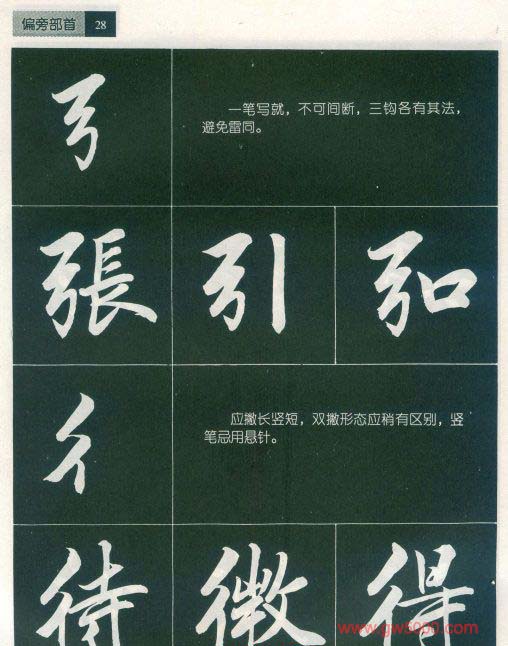 偏旁部首 28
弓
一笔写就，不可间断，三钩各有其法，
避免雷同。
張 引 弘
彳
应撇长竖短，双撇形态应稍有区别，竖
笔忌用悬针。
待 微 得
www.gw5000.com